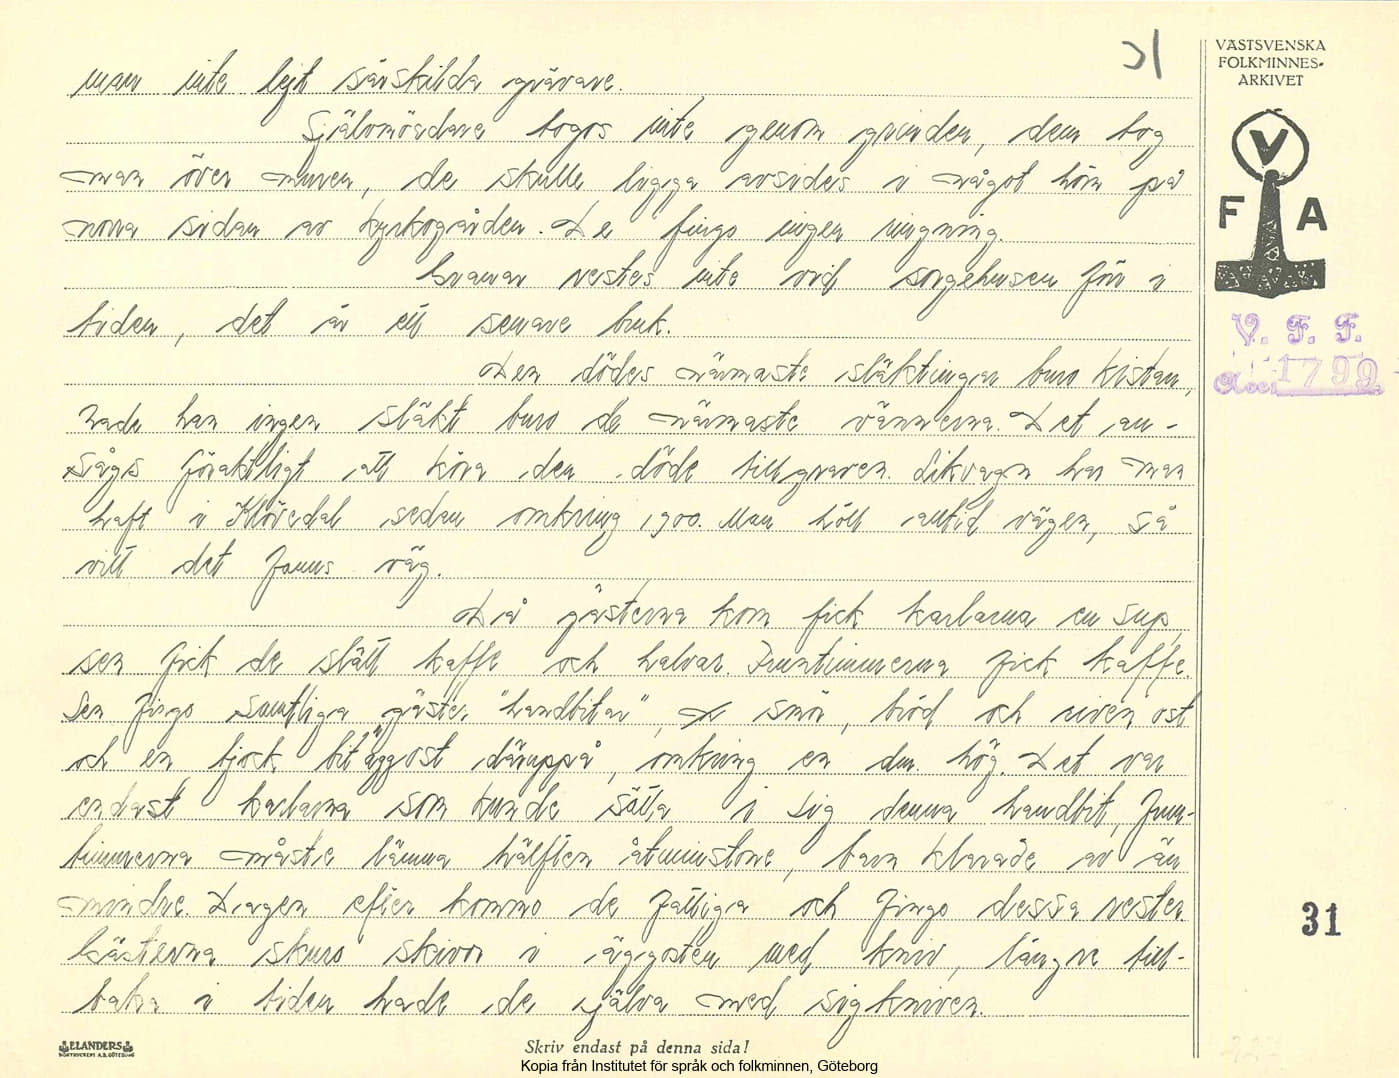 31
VÄSTSVENSKA
FOLKMINNES-
ARKIVET
V
F A
V. F. F.
Acc. 1799
man inte lejt särskilda grävare.
Självmördare togos inte genom grinden, dem tog
man över muren, de skulle ligga avsides i något hörn på
norra sidan av kyrkogården. De fingo ingen ringning.
Granar restes inte vid sorgehusen förr i
tiden, det är ett senare bruk.
Den dödes närmaste släktingar buro kistan,
hade han ingen släkt buro de närmaste vännerna. Det an-
sågs föraktligt att köra den döde till graven. Likvagn har man
haft i Klövedal sedan omkring 1900. Man höll alltid vägen, så
vitt det fanns väg.
Då gästerna kom fick karlarna en sup,
sen fick de slätt kaffe och halvar. Fruntimmerna fick kaffe.
Sen fingo samtliga gäster "handbitar", smör, bröd och riven ost
och en tjock bit äggost däruppå, omkring en dm. hög. Det var
endast karlarna som kunde sätta i sig denna handbit, frun-
timmerna måste lämna hälften åtminstone, barn klarade av än
mindre. Dagen efter kommo de fattiga och fingo dessa rester.
Gästerna skuro skivor i äggosten med kniv, längre till-
baka i tiden hade de själva med sig kniven.
31
ELANDERS
BOKTRYCKERI A.B. GÖTEBORG
Skriv endast på denna sida!
Kopia från Institutet för språk och folkminnen, Göteborg